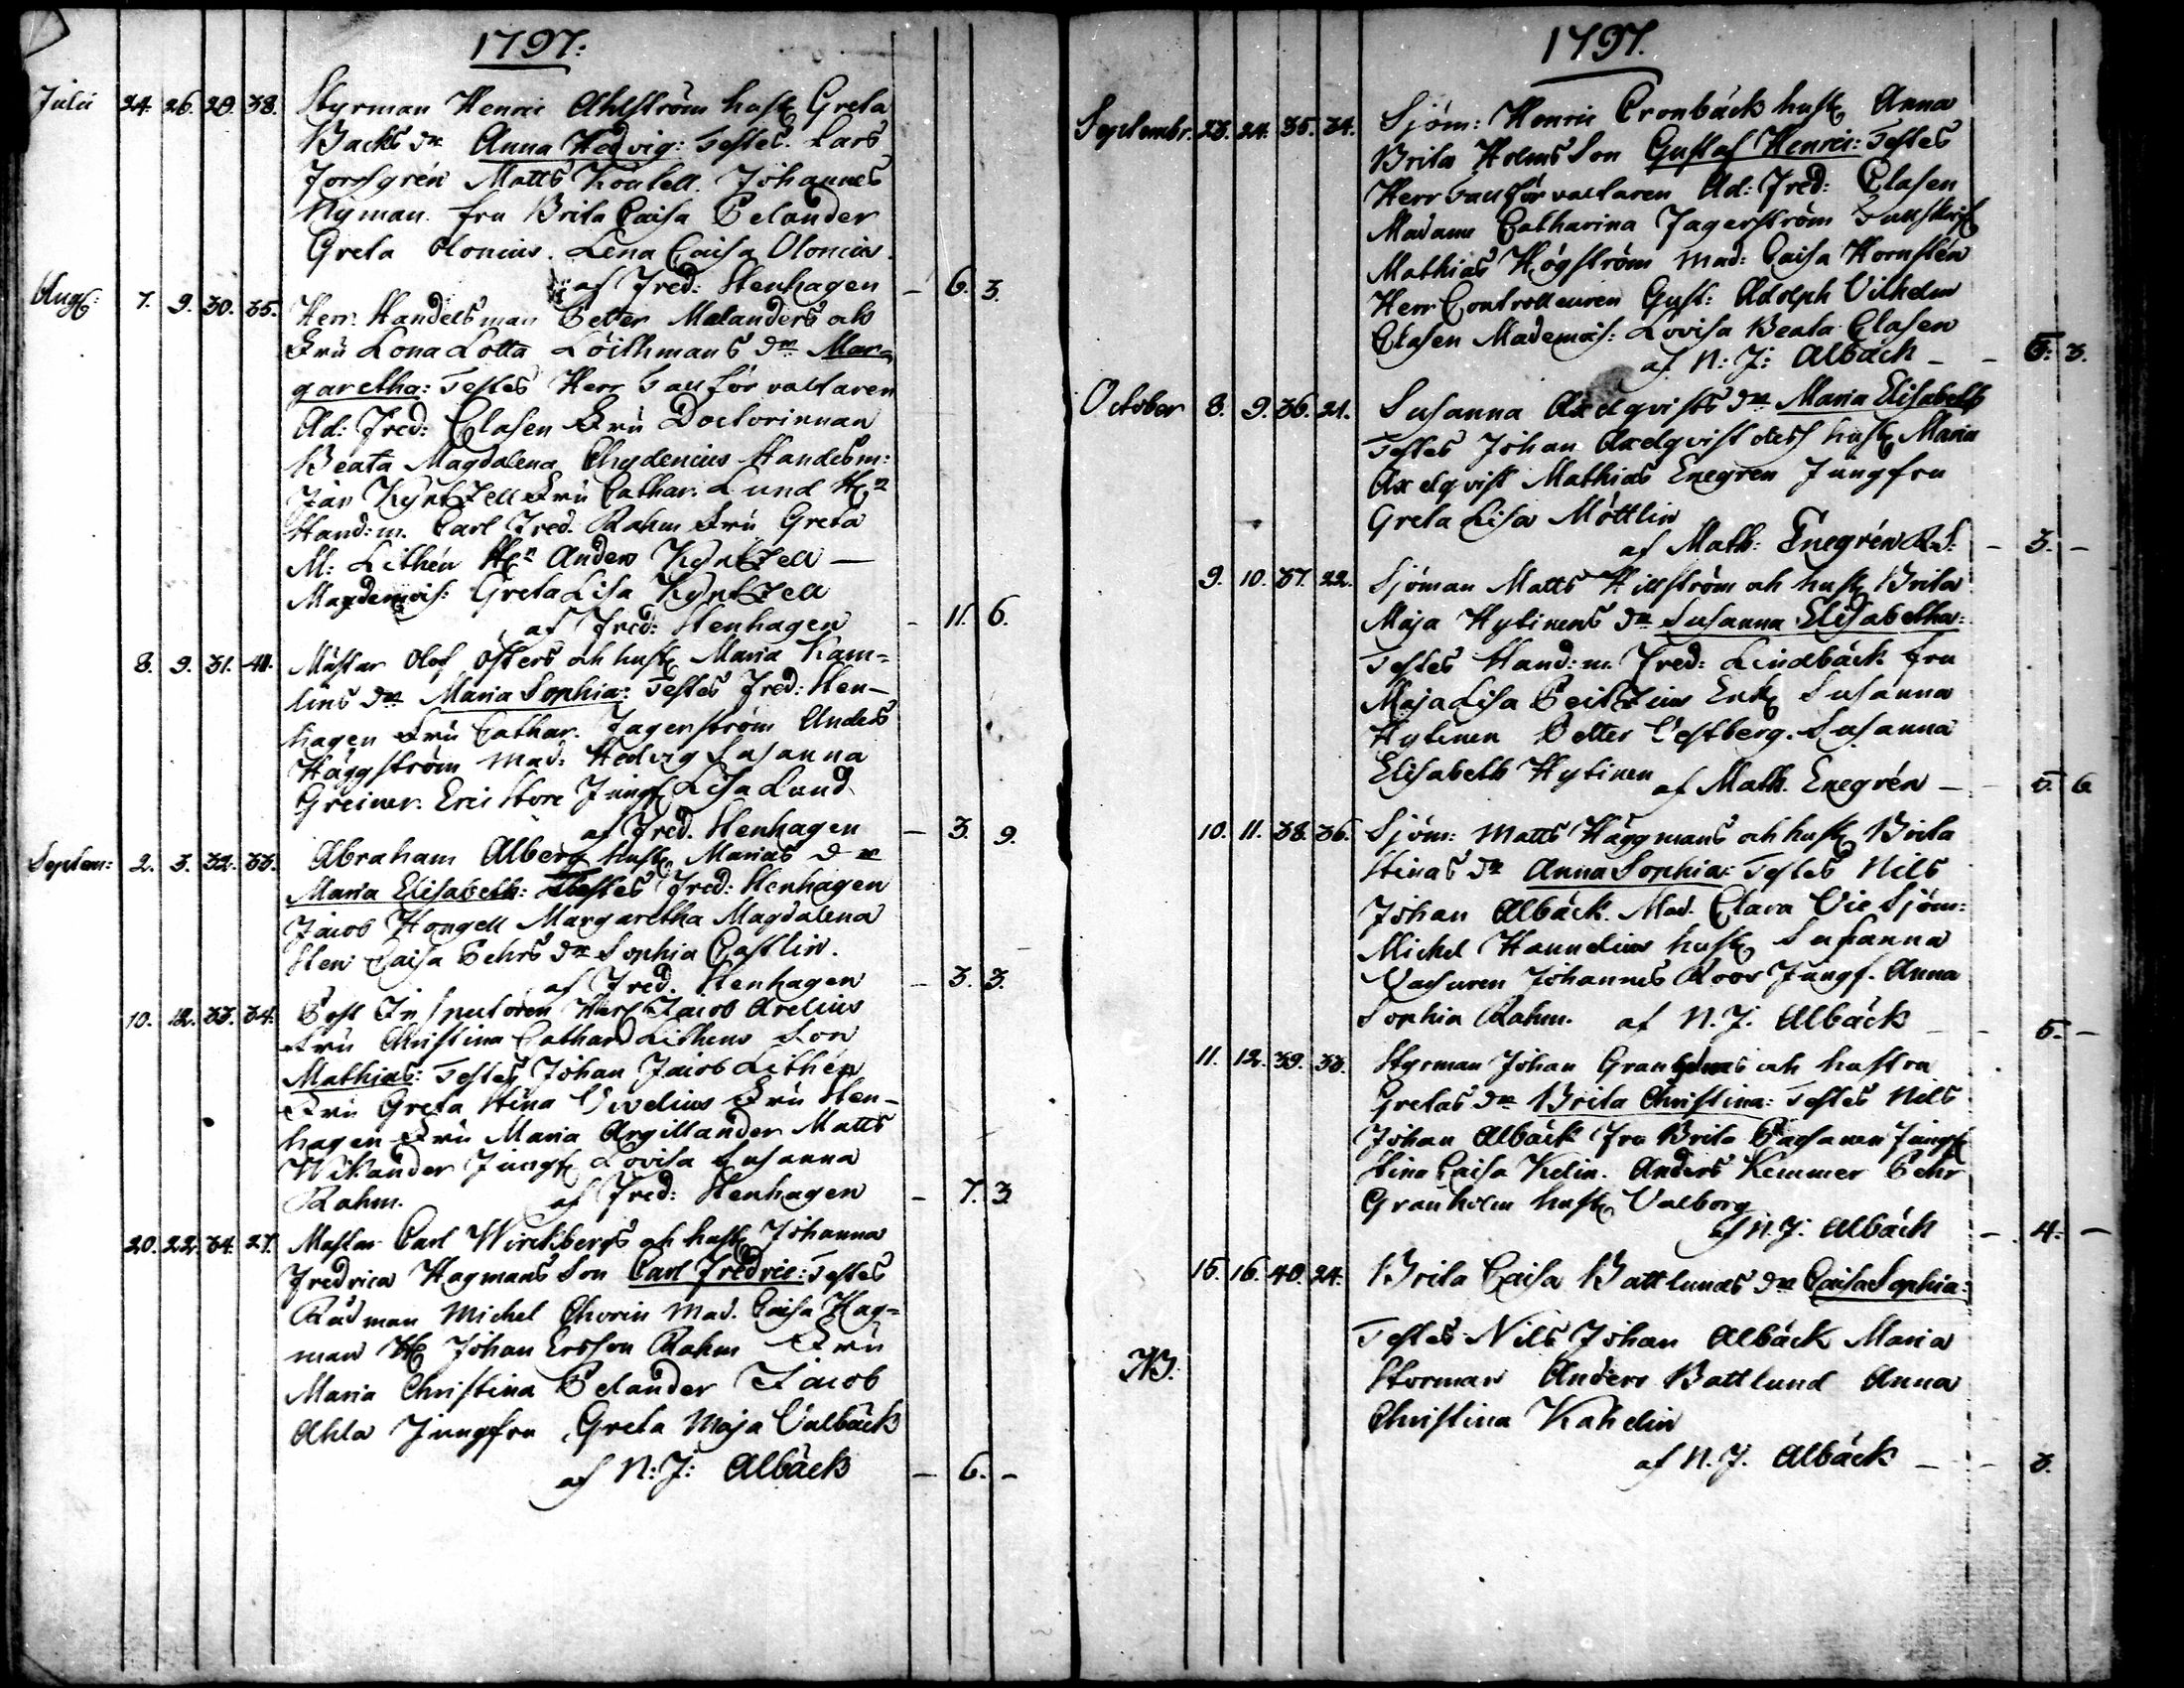 1797:
Julii 24. 26. 29. 38. Styrman Henric Ahlström hust: Greta
Backs dr Anna Hedvig: Testes. Lars
Matts Johannes
Nyman. fru Brita Caisa Pelander
Greta Olonius. Lena Caisa Olonius.
af Fred: Stenhagen – 6. 3.
Aug: 7. 9. 30. 35. Herr Handelsman Petter Malanders och
Fru Lona Lotta dr Mar-
garetha: Testes Herr förvaltaren
Ad: Fred: Clasen Fru Doctorinnan
Beata Magdalena Chydenius Handelsm:
Kyntzell Fru Cathar. Lund Hr
Hand: m. Carl Fred. Rahm Fru Greta
M: Lithén Hr Anders Kyntzell –
Mademois: Greta Lisa Kyntzell
af Fred: Stenhagen – 11. 6.
8. 9. 31. 40. Mästar Olof Östers och hust: Maria Kam-
lins dr Maria Sophia: Testes Fred: Sten-
hagen Fru Cathar. Jagerström Anders
Häggström Mad: Hedvig Susanna
Greiner. Eric Store Jungf: Lisa Lund
af Fred. Stenhagen – 3. 9.
Septem: 2. 3. 32. 33. Abraham Alberg hust: Marias dr
Maria Elisabeth: Testes Fred: Stenhagen
Jacob Hongell Margaretha Magdalena
Sten Caisa Pehrs dr Sophia Castlin.
af Fred. Stenhagen – 3. 3.
10. 12. 33. 34. Post Inspectoren Jacob Arelius
Fru Christina Cathar Lithens Son
Mathias: Testes Johan Jacob Lithén
Fru Greta Stina Fru Sten-
hagen Fru Maria Argillander Matts
Wikander Jungf: Lovisa Susanna
Rahm. af Fred: Stenhagen – 7. 3.
20. 22. 34. 27. Mästar Carl Wirckbergs och hust: Johanna
Fredrica Hagmans Son Carl Fredric: Testes
Rådman Michel Chorin Mad. Caisa Hag-
man Hr Johan Ersson Rahm Fru
Maria Christina Pelander Jacob
Ahla Jungfru Greta Maja Valbäck
af N: J: Albäck – 6. –
1797.
Septembr. 23. 24. 35. 34. Sjöm: Henric Cronbäck hust: Anna
Brita Holms Son Gustaf Henric: Testes
Herr förvaltaren Ad: Fred: Clasen
Madame Catharina Jagerström
Mathias Högström Mad: Caisa Hornstén
Herr Controlleuren Gust: Adolph Vilhelm
Clasen Mademois: Lovisa Beata Clasen
af N: J: Albäck – – 6: 3.
October 8. 9. 36. 21. Susanna Axelqvists dr Maria Elisabeth
Testes Johan Axelqvist dess hust: Maria
Axelqvist Mathias Enegren Jungfru
Greta Lisa Möttlin
af Math: Enegrén – 3. –
9. 10. 37. 22. Sjöman Matts Hillström och hust: Brita
Maja Hytinens dr Susanna Elisabetha:
Testes Hand: m. Fred: Lindbäck fru
Maja Lisa Enk: Susanna
Hytinen Petter Vestberg. Susanna
Elisabeth Hytinen af Math. Enegrén – 5. 6
10. 11. 38. 36. Sjöm: Matts Häggmans och hust: Brita
Stinas dr Anna Sophia: Testes Nils
Johan Albäck. Mad. Clara Vic Sjöm:
Michel Hannelius hust: Susanna
Johannes Roos Jungf. Anna
Sophia Rahm. af N. J. Albäck – – 5. –
11. 12. 39. 33. Styrman Johan Granholms och hustru
Gretas dr Brita Christina: Testes Nils
Johan Albäck fru Brita Jungf:
Stina Caisa Kelin. Anders Kemmer Pehr
Granholm hust: Valborg
af N. J. Albäck – 4. –
15. 16. 40. 24. Brita Caisa Battlunds dr Caisa Sophia:
Testes Nils Johan Albäck Maria
Storman Anders Battlund Anna
Christina Kahelin
af N. J. Albäck – – 3.